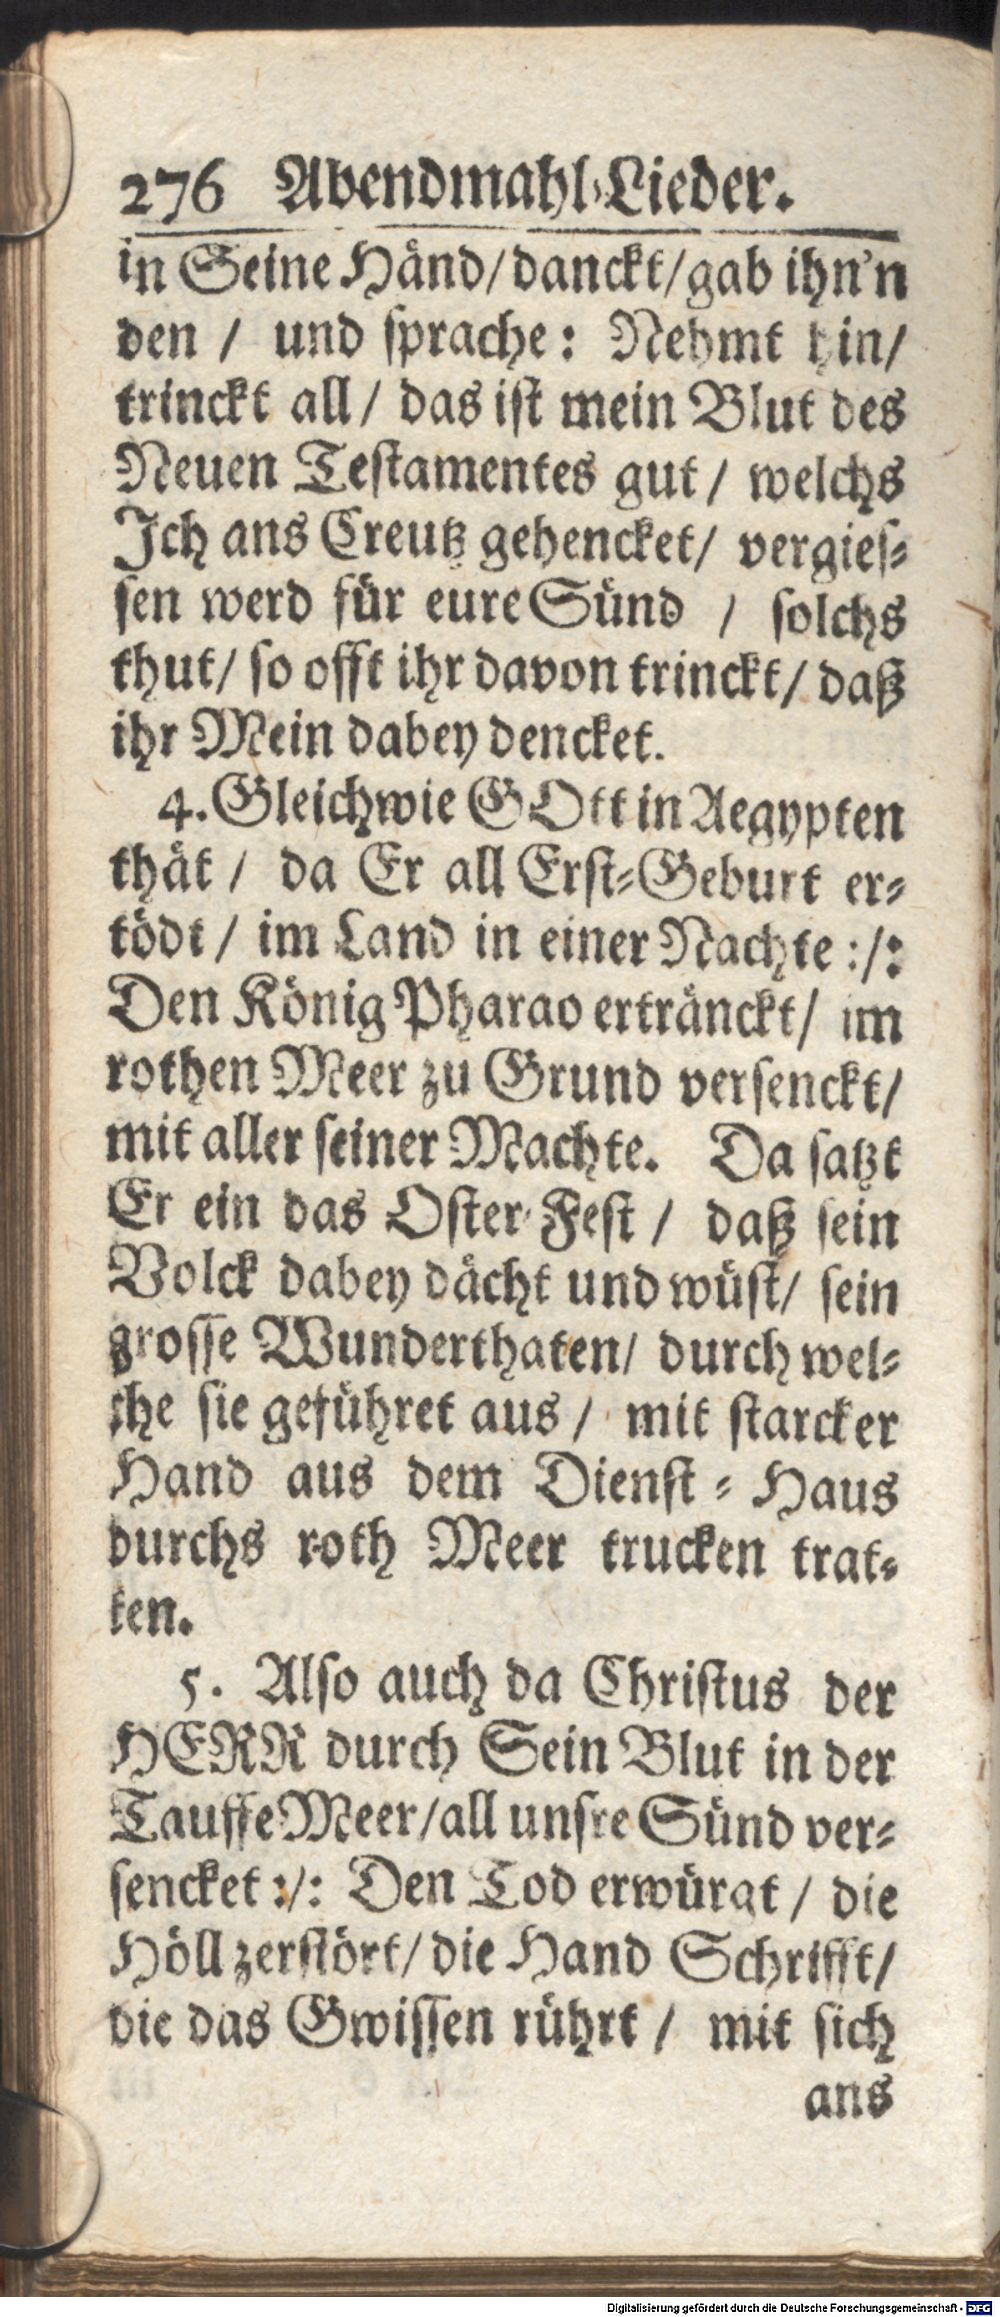 276 Abendmahl-Lieder.
in Seine Händ/ danckt/ gab ihn'n
den / und sprache: Nehmt hin/
trinckt all/ das ist mein Blut des
Neuen Testamentes gut / welchs
Ich ans Creutz gehencket/ vergies-
sen werd für eure Sünd / solchs
thut/ so offt ihr davon trinckt/ daß
ihr Mein dabey dencket.
4. Gleichwie GOtt in Aegypten
thät / da Er all Erst-Geburt er-
tödt / im Land in einer Nachte :/:
Den König Pharao ertränckt/ im
rothen Meer zu Grund versenckt/
mit aller seiner Machte. Da satzt
Er ein das Oster-Fest / daß sein
Volck dabey dächt und wüst/ sein
grosse Wunderthaten/ durch wel-
che sie geführet aus / mit starcker
Hand aus dem Dienst-Haus
durchs roth Meer trucken trat-
ten.
5. Also auch da Christus der
HERR durch Sein Blut in der
Tauffe Meer/ all unsre Sünd ver-
sencket :/: Den Tod erwürgt / die
Höll zerstört/ die Hand Schrifft/
die das Gwissen rührt / mit sich
ans
Digitalisierung gefördert durch die Deutsche Forschungsgemeinschaft - DFG